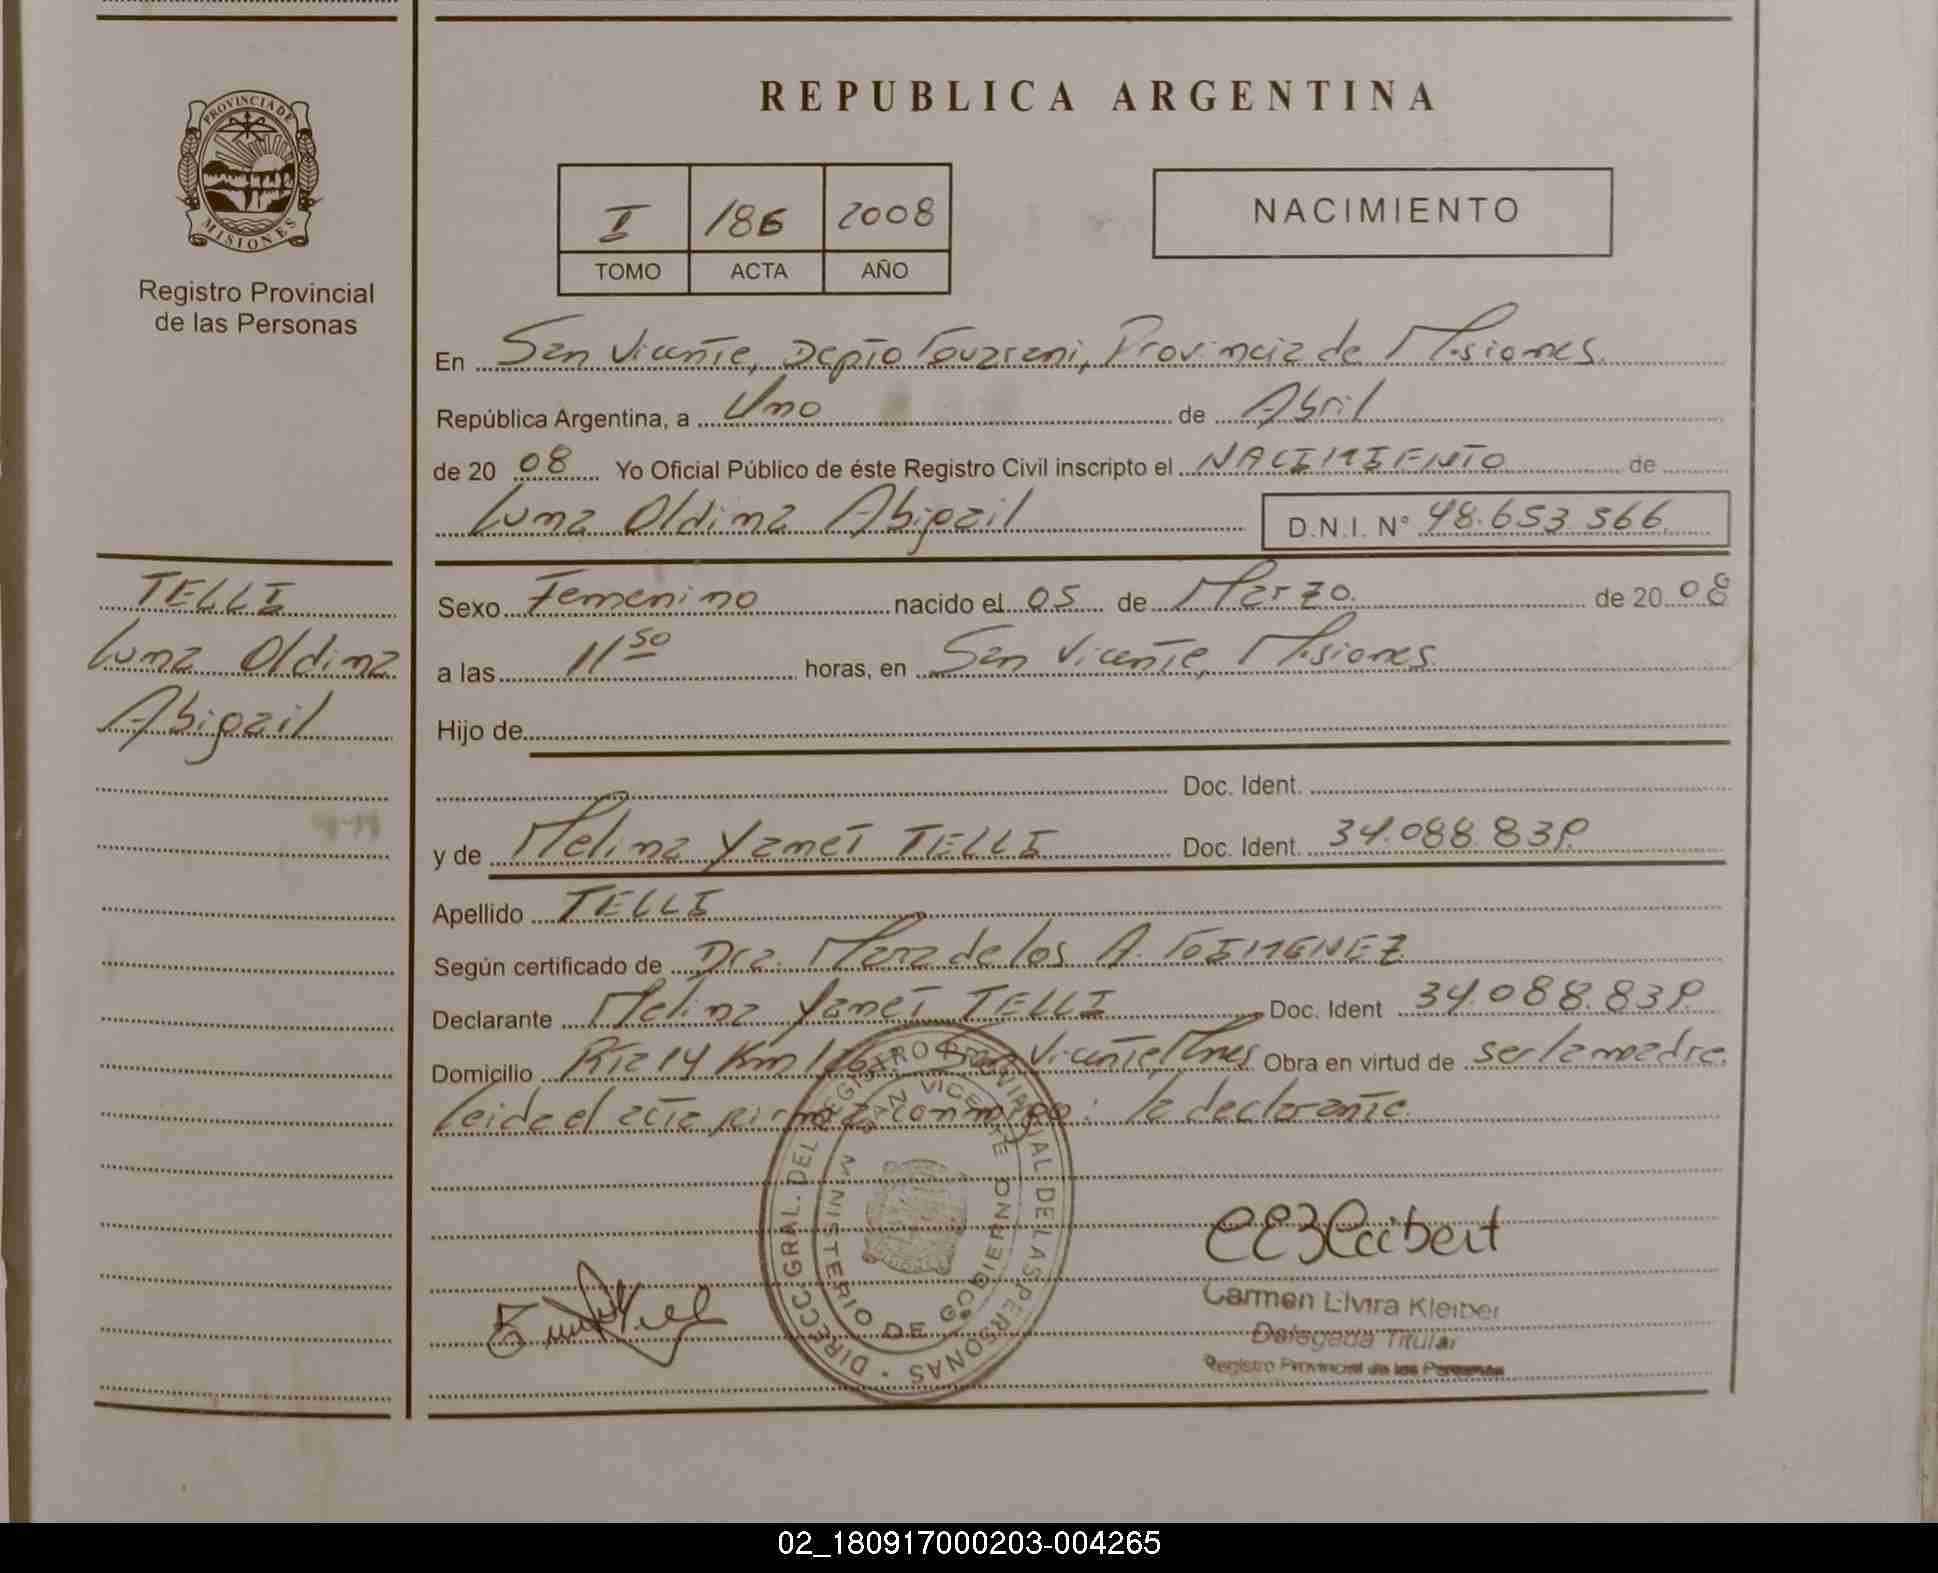 PROVINCIA DE
MISIONES
Registro Provincial
de las Personas
REPUBLICA ARGENTINA
I 186 2008
TOMO ACTA AÑO
NACIMIENTO
En San Vicente, Depto Guarani, Provincia de Misiones
República Argentina, a Uno de Abril
de 20 08 Yo Oficial Público de éste Registro Civil inscripto el NACIMIENTO de
Luna Oldina Abigail D.N.I. N° 48.653.566
TELLI
Luna Oldina
Abigail
Sexo Femenino nacido el 05 de Marzo de 20 08
a las 11 50 horas, en San Vicente, Misiones
Hijo de
Doc. Ident.
y de Melina Yanet TELLI Doc. Ident. 34.088.839
Apellido TELLI
Según certificado de Dra. Maria de los A. GIMENEZ
Declarante Melina Yanet TELLI Doc. Ident 34.088.839
Domicilio Rta 14 Km San Vicente, Mnes Obra en virtud de ser la madre
Leida el acta firma conmigo: la declarante.
DIRECC. GRAL. DEL REGISTRO PROVINCIAL DE LAS PERSONAS
SAN VICENTE
MINISTERIO DE GOBIERNO
Carmen Elvira Kleiber
Delegada Titular
Registro Provincial de las Personas
02_180917000203-004265